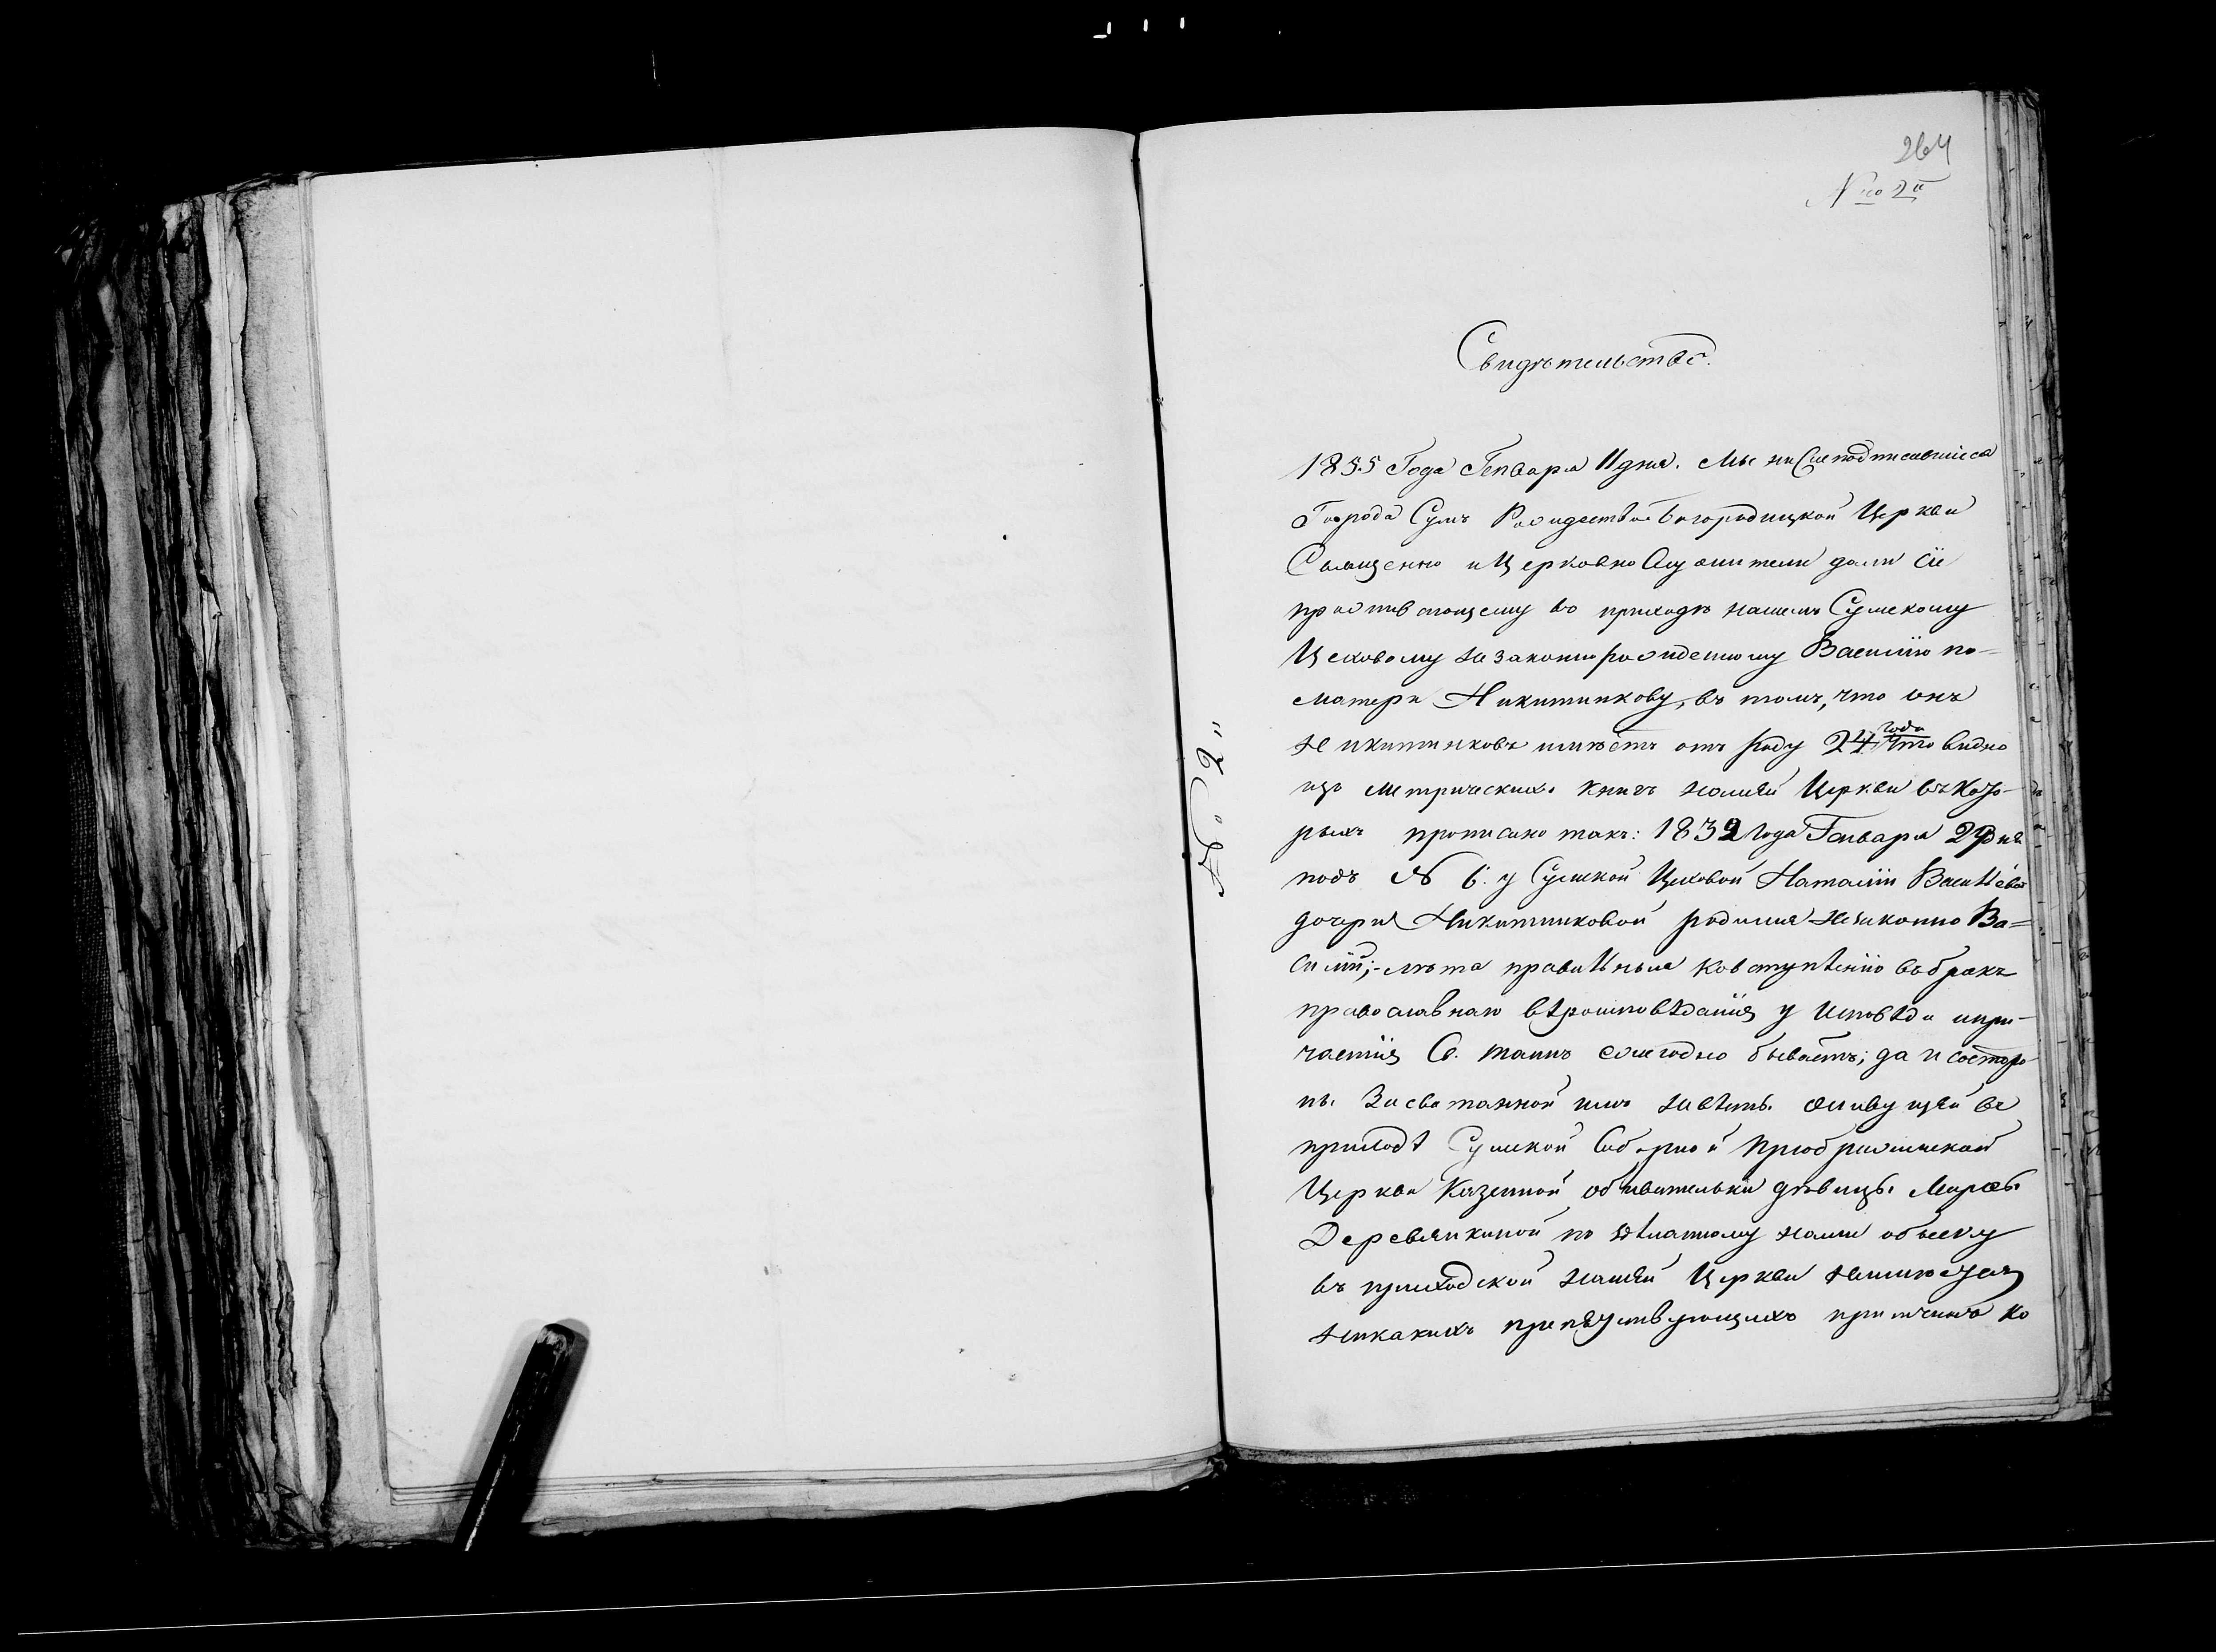 264
№ 2й
Свидѣтельство.
1855 Года Генваря 11 дня. Мы нижеподписавшіеся
Города Сумъ Рождество-Богородицкой Церкви
Священно и Церковно Служители дали сіе
проживающему во приходѣ нашемъ Сумскому
Цеховому незаконнорожденному Василію по-
матери Никитинкову, въ томъ, что онъ
Никитинковъ имѣетъ отъ роду 24 года что видно
изъ метрическихъ книгъ нашей Церкви въ кото-
рыхъ прописано такъ: 1832 года Генваря дня
подъ № 6. у Сумской Цеховой Наталіи Васильевой
дочери Никитинковой родился незаконно Ва=
силій;- лѣта правильныя ко вступленію въ бракъ
православнаго вѣроисповѣданія у Исповѣди и при-
частія Св. таинъ ежегодно бываетъ; да и состоро-
ны Засватанной имъ невѣсты живущей въ
приходѣ Сумской Соборной Преображенской
Церкви Казенной обывательки дѣвицы Марѳы
Деревянкиной по дѣланному нами обыску
въ приходской нашей Церкви
никакихъ препятствующихъ причинъ ко
№ 2"